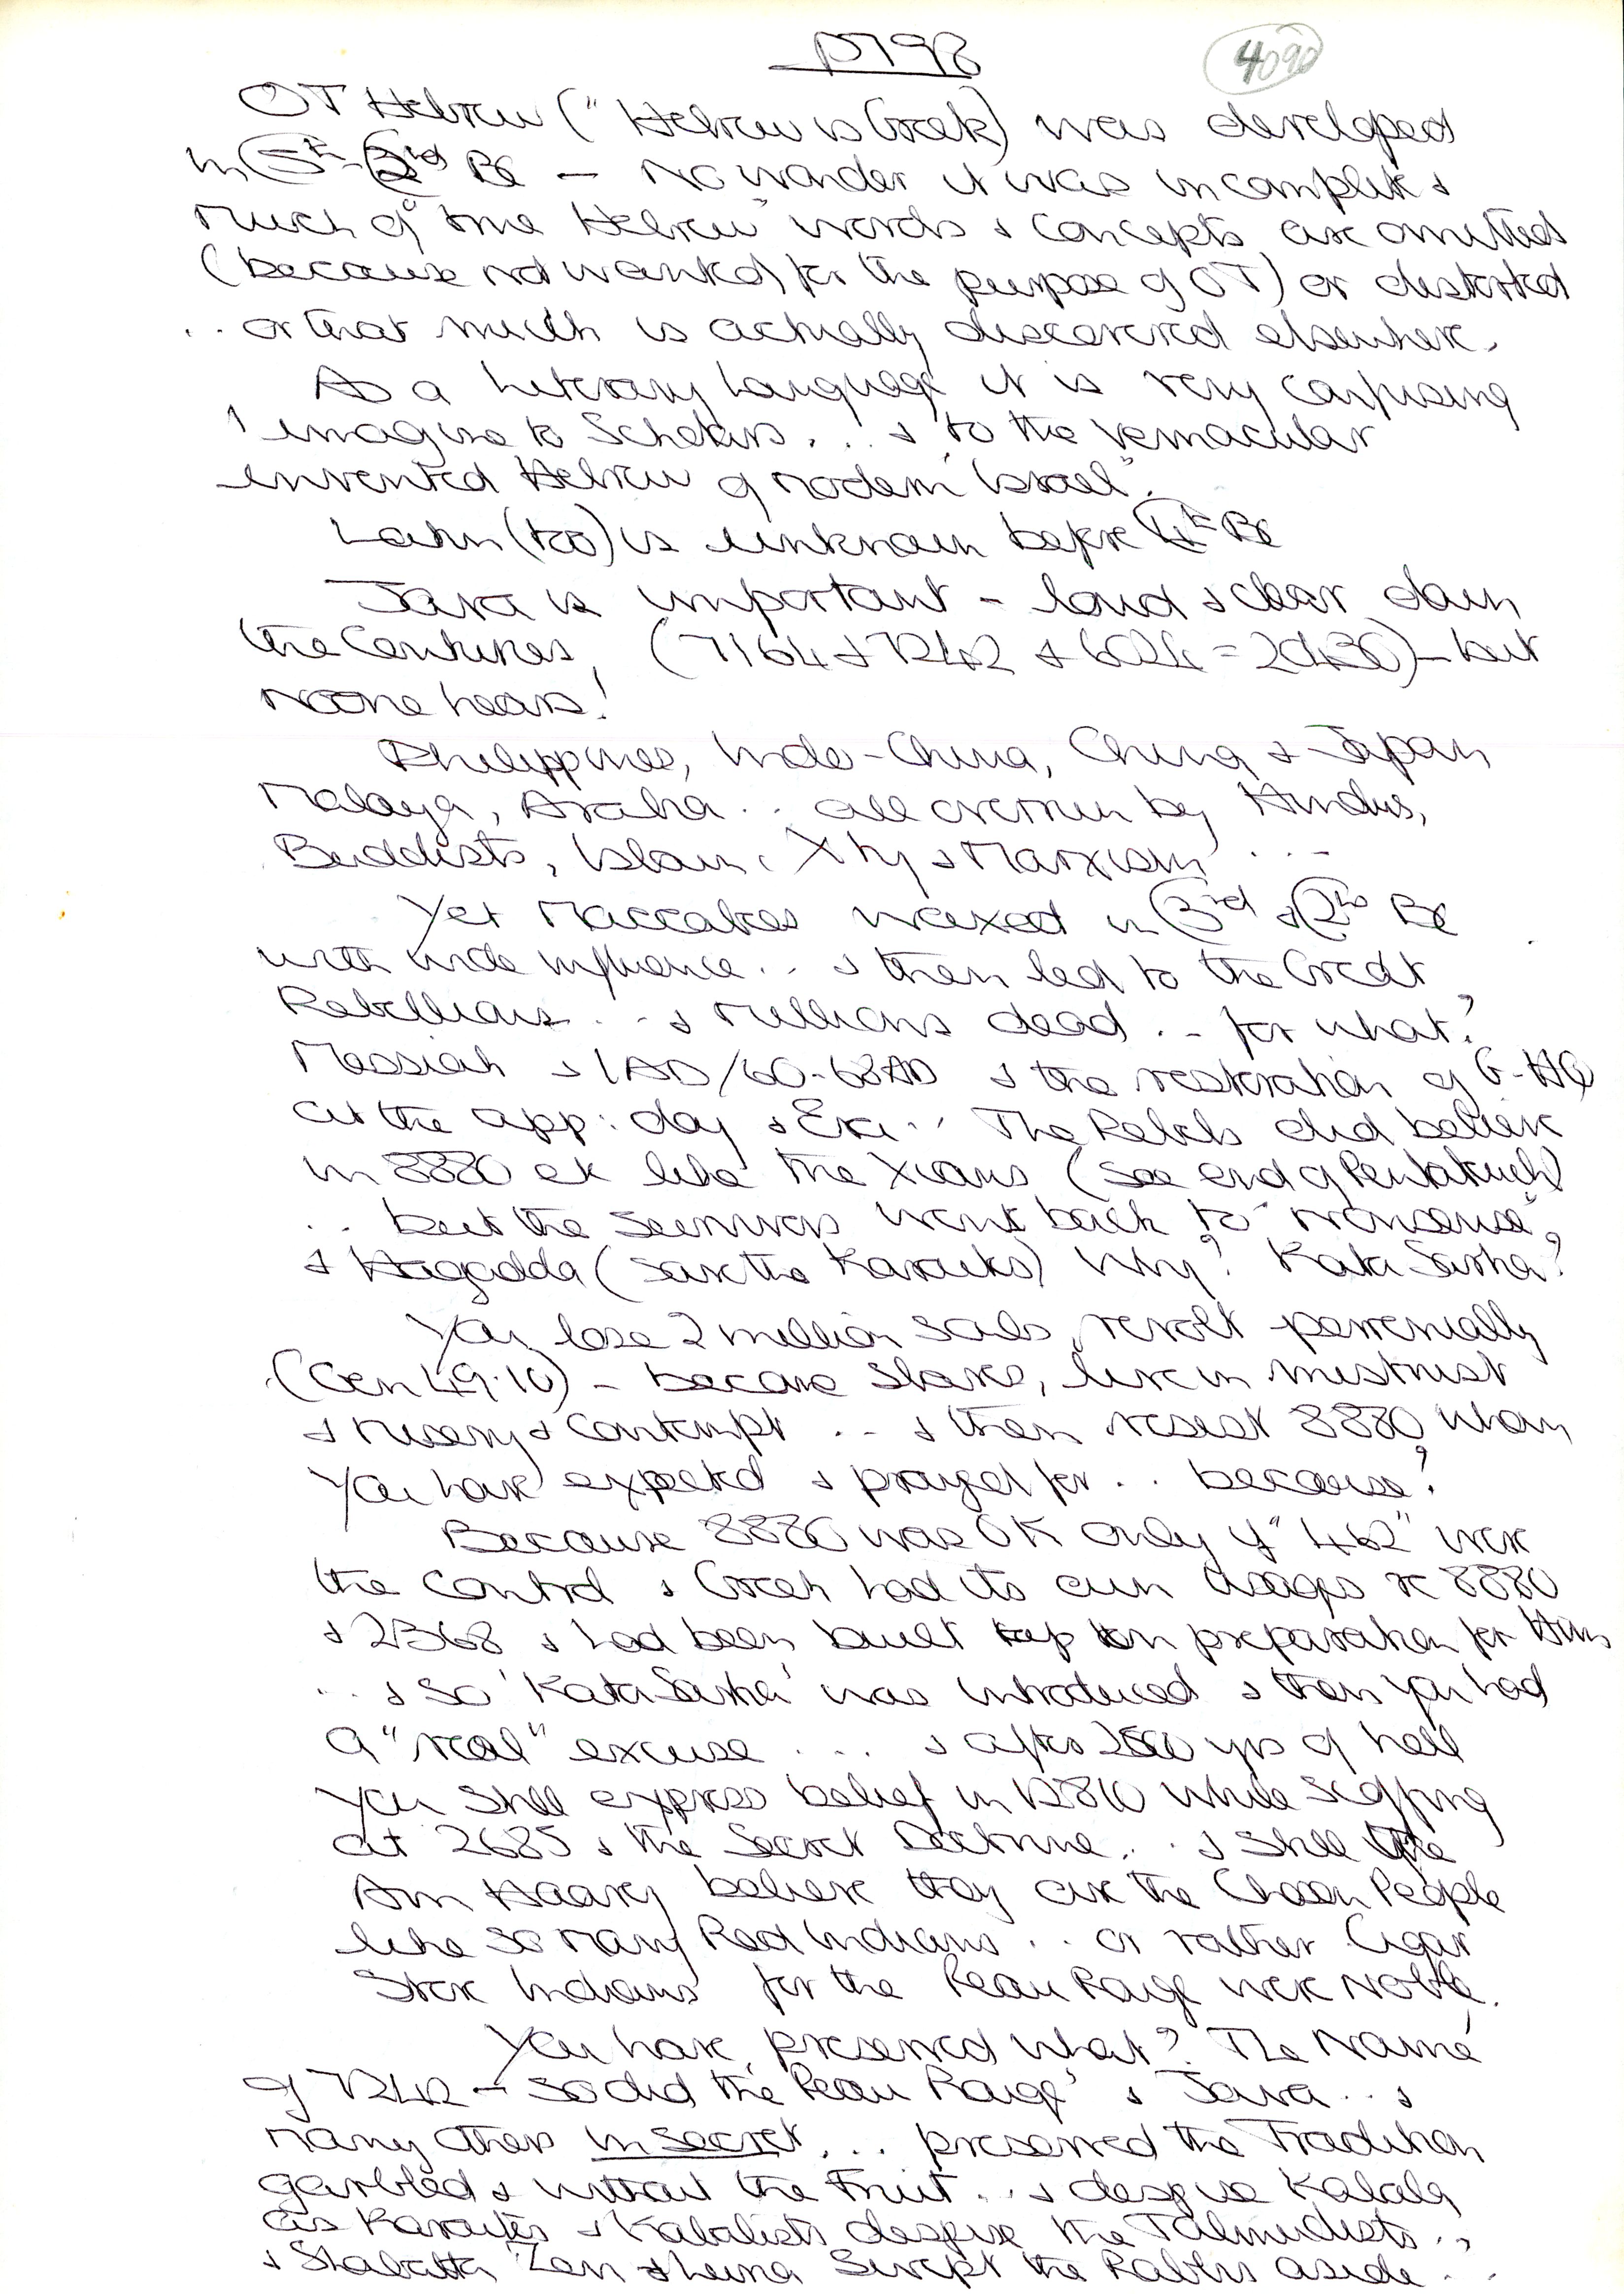 p798
4090
OT Hebrew ("Hebrew is Greek) was developed
in 5th- 2nd BC – No wonder it was incomplete &
Much of "true Hebrew" words & concepts are omitted
(because not wanted for the purpose of OT) or distorted
.. or that much is actually discovered elsewhere.
As a literary language it is very confusing
I imagine to Scholars ... & to the vernacular
invented Hebrew of modern "Israel".
Latin (too) is unknown before 4th BC
Java is important – loud & clear down
the Centuries, (7164 & 7242 & 6024 = 20430) – but
no one hears!
Philippines, Indo-China, China & Japan
Malaya, Arabia .. all overrun by Hindus,
Buddists, Islam, Xty & Marxism ...
Yet Maccabees waxed in 3rd & 2nd BC
with wide influence .. & then led to the Great
Rebellions .. & Millions dead .. for what?
Messiah & 1AD/60-68AD & the restoration of G-
at the app: day & .. The Rebels did believe
in 8880 etc like the Xians (see end of Pentateuch)
.. but the Survivors went back to "nonsense"
& Hagadda (save the Karaites) Why? Kata Sarka?
You lose 2 million souls, revolt perrenially
(Gen 49.10) – become slaves, live in mistrust
& misery & contempt .. & then resist 8880 whom
you have expected & prayed for .. because?
Because 8880 was OK only if "462" were
the control & Greek had its own usages re 8880
& 2368 & had been built up in preparation for Him
... & so 'Kata Sarka' was introduced & then you had
a "real" excuse .... & after 2500 yrs of hell
you still express belief in 12810 while scoffing
at 2685 & the Secret Doctrine .. & still the
Am Haarez believe they are the Chosen People
like so many Red Indians .. or rather Cigar
Store Indians for the Peau Rouge were Noble.
You have preserved what? The Name
of 7242 – so did the 'Peau Rouge' & Java .. &
many others in secret ... preserved the Tradition
garbled & without the Fruit .. & despise Kabala
as Karaites & Kabalists despise the Talmudists ..,
& Shabattai Zevi & Luria swept the Rabbis aside ..